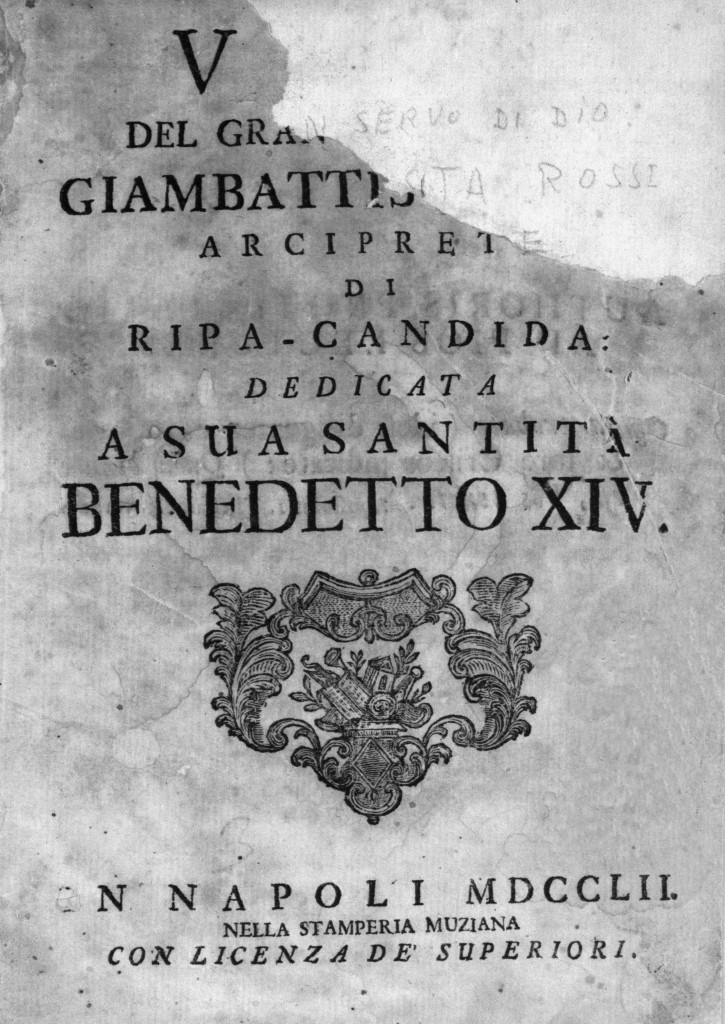 V
DEL GRAN SERVO DI DIO
GIAMBATTISTA ROSSI
ARCIPRETE
DI
RIPA-CANDIDA:
DEDICATA
A SUA SANTITÀ
BENEDETTO XIV.
IN NAPOLI MDCCLII.
NELLA STAMPERIA MUZIANA
CON LICENZA DE' SUPERIORI.